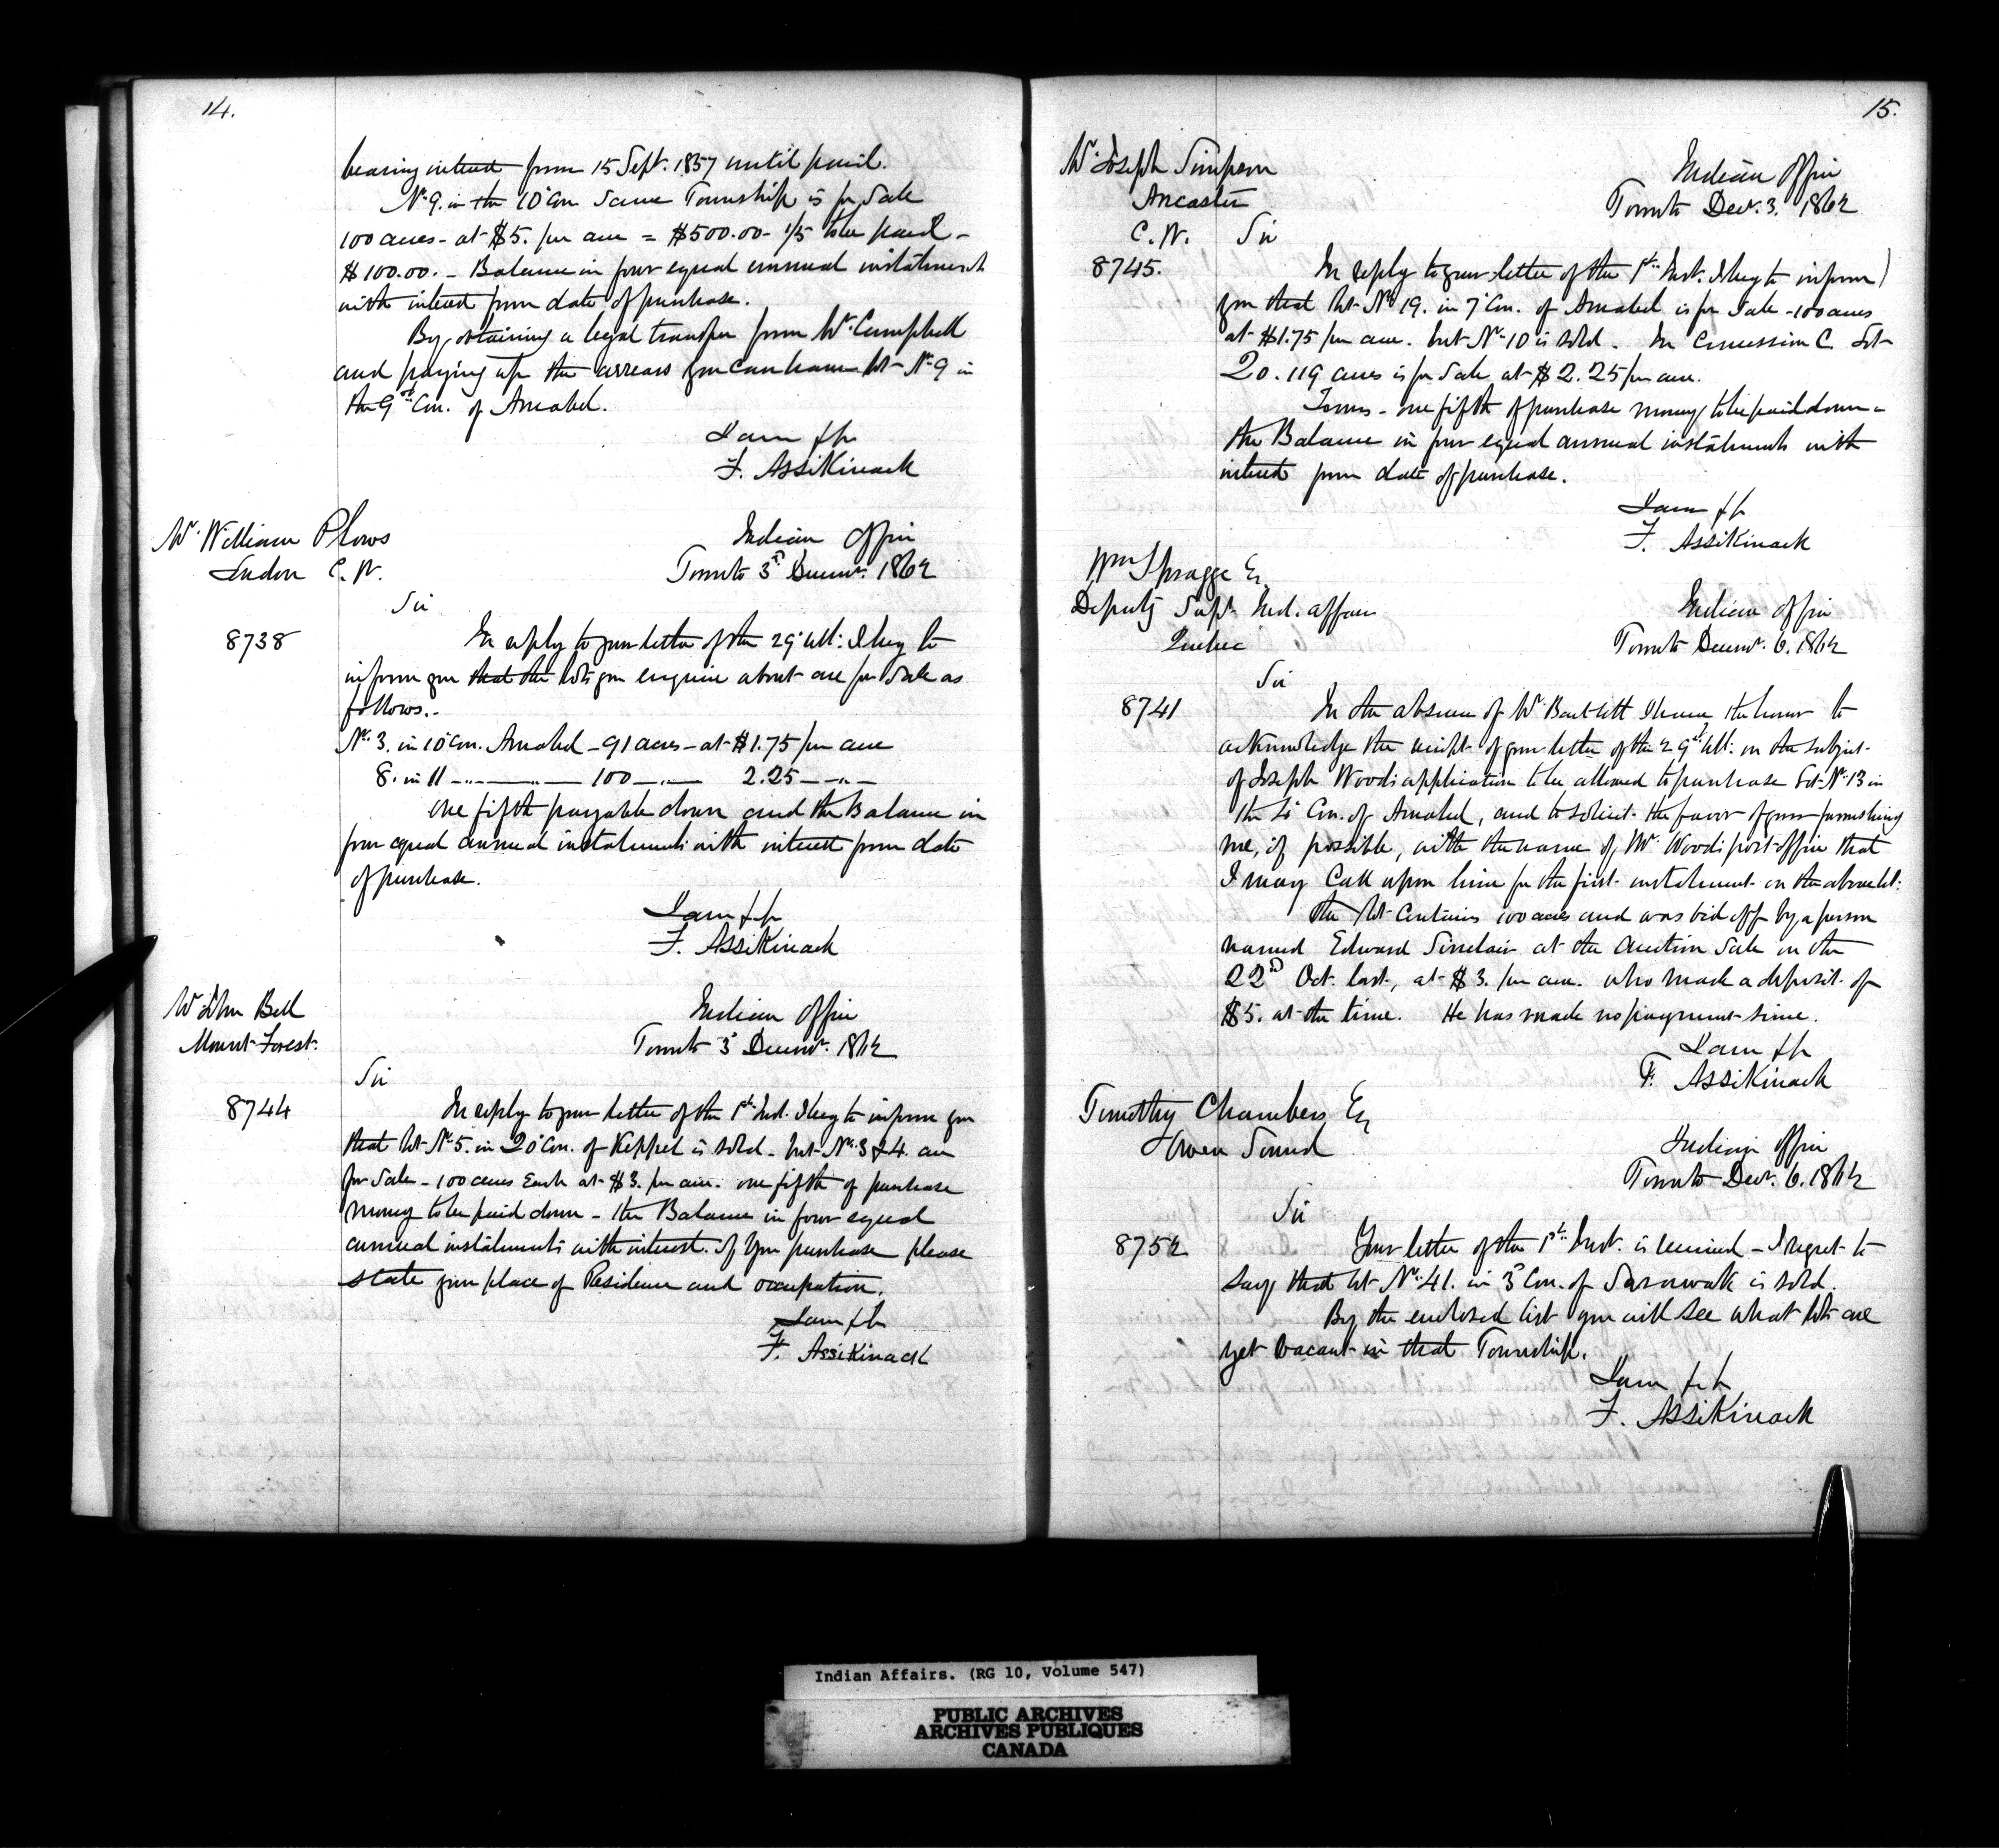 14.
bearing interest from 15 Sept. 1857 until paid.
No. 9. in the 10 Con. Same Township is for Sale
100 acres - at $5. per acre = $500.00 - 1/5 to be paid -
$100.00. - Balance in four equal annual instalments
with interest from date of purchase.
By obtaining a legal transfer from Mr. Campbell
and paying up the arrears you can have lot No. 9 in
the 9th Con. of Amabel.
I am &c
F. Assikinack
Mr. William Plows
London C. W.
Indian Office
Toronto 3d Decemr. 1862
Sir
8738
In reply to your letter of the 29 Ult: I beg to
inform you that the lots you enquire about are for Sale as
follows. -
No. 3. in 10 Con. Amabel - 91 acres - at $1.75 per acre
8. in 11 - " - " - 100 - " - 2.25 - " -
One fifth payable down and the Balance in
four equal annual instalments with interest from date
of purchase.
I am &c
F. Assikinack
Mr John Bell
Mount Forest.
Indian Office
Toronto 3d Decemr. 1862
Sir
8744
In reply to your letter of the 1st Inst. I beg to inform you
that lot No. 5. in 20 Con. of Keppel is sold - but No. 3 & 4. are
for Sale - 100 acres Each at $3. per acre. one fifth of purchase
money to be paid down - the Balance in four equal
annual instalments with interest. If you purchase please
state your place of Residence and occupation.
I am &c
F. Assikinack
15.
Mr. Joseph Simpson
Ancaster
C. W.
Indian Office
Toronto Decr. 3. 1862
Sir
8745.
In reply to your letter of the 1st Inst. I beg to inform
you that lot No. 19. in 7 Con. of Amabel is for Sale - 100 acres
at $1.75 per acre. but No. 10 is sold. In Concession C. Lot
20. 119 acres is for Sale at $2.25 per acre.
Terms - one fifth of purchase money to be paid down -
the Balance in four equal annual instalments with
interest from date of purchase.
I am &c
F. Assikinack
Wm Spragge Esq.
Deputy Supt. Ind. affairs
Quebec
Indian Office
Toronto Decemr. 6. 1862
Sir
8741
In the absence of Mr Bartlett I have the honor to
acknowledge the receipt of your letter of the 29th Ult: on the subject
of Joseph Woods application to be allowed to purchase Lot No. 13 in
the Con. of Amabel, and to solicit the favor of your furnishing
me, if possible, with the name of Mr. Woods post office that
I may Call upon him for the first instalment on the above lot.
the lot Contains 100 acres and was bid off by a person
named Edward Sinclair at the Auction Sale on the
22nd Oct. last, at $3. per acre. who made a deposit of
$5. at the time. He has made no payment since.
I am &c
F. Assikinack
Timothy Chambers Esq
Owen Sound
Indian Office
Toronto Decr. 6. 1862
Sir
8752
Your letter of the 1st Inst. is received - I regret to
say that lot No. 41. in 3d Con. of Sarawak is sold.
By the enclosed list you will see what lots are
yet vacant in that Township.
I am &c
F. Assikinack
Indian Affairs. (RG 10, Volume 547)
PUBLIC ARCHIVES
ARCHIVES PUBLIQUES
CANADA